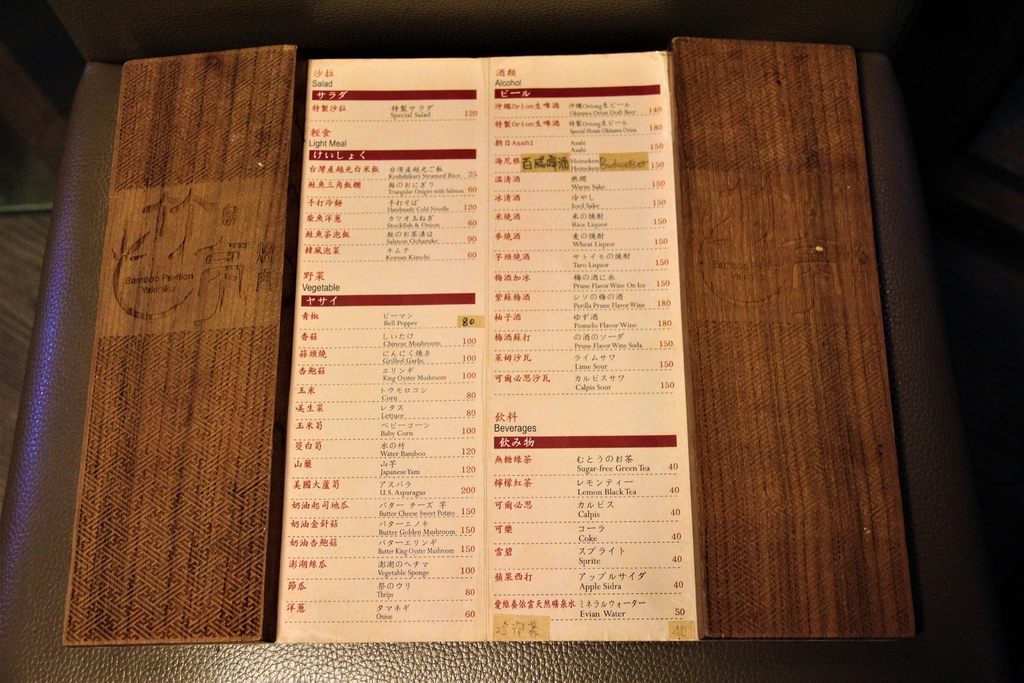 Bamboo Pavilion
Yakiniku
沙拉
Salad
サラダ
特製沙拉 特製サラダ Special Salad 120
輕食
Light Meal
けいしょく
台灣產越光白米飯 台湾産越光ご飯 Koshihikari Steamed Rice 25
鮭魚三角飯糰 鮭のおにぎり Triangular Onigiri with Salmon 60
手打冷麵 手打そば Handmade Cold Noodle 120
柴魚洋蔥 カツオ玉ねぎ Stockfish & Onion 60
鮭魚茶泡飯 鮭のお茶漬は Salmon Ochazuke 90
韓風泡菜 キムチ Korean Kimchi 60
野菜
Vegetable
ヤサイ
青椒 ピーマン Bell Pepper 80
香菇 しいたけ Chinese Mushroom 100
蒜頭燒 にんにく焼き Grilled Garlic 100
杏鮑菇 エリンギ King Oyster Mushroom 100
玉米 トウモロコシ Corn 80
美生菜 レタス Lettuce 80
玉米筍 ベビーコーン Baby Corn 100
茭白筍 水の竹 Water Bamboo 120
山藥 山芋 Japanese Yam 120
美國大蘆筍 アスパラ U.S. Asparagus 200
奶油起司地瓜 バター チーズ 芋 Butter Cheese Sweet Potato 150
奶油金針菇 バターエノキ Butter Golden Mushroom 150
奶油杏鮑菇 バターエリンギ Butter King Oyster Mushroom 150
澎湖絲瓜 澎湖のヘチマ Vegetable Sponge 100
節瓜 祭のウリ Thrips 80
洋蔥 タマネギ Onion 60
酒類
Alcohol
ビール
沖繩Orion生啤酒 沖縄Oriong生ビール Okinawa Orion Draft Beer 140
特製Orion生啤酒 特製Oriong生ビール Special House Okinawa Orion 180
朝日Asahi Asahi Asahi 150
海尼根 百威啤酒 Heineken Heineken Budweiser 150
溫清酒 熱燗 Warm Sake 150
冰清酒 冷やし Iced Sake 150
米燒酒 米の焼酎 Rice Liquor 150
麥燒酒 麦の焼酎 Wheat Liquor 150
芋頭燒酒 サトイモの焼酎 Taro Liquor 150
梅酒加冰 梅の酒に氷 Prune Flavor Wine On Ice 150
紫蘇梅酒 シソの梅の酒 Perilla Prune Flavor Wine 180
柚子酒 ゆず酒 Pomelo Flavor Wine 180
梅酒蘇打 の酒のソーダ Prune Flavor Wine Soda 150
萊姆沙瓦 ライムサワ Lime Sour 150
可爾必思沙瓦 カルピスサワ Calpis Sour 150
飲料
Beverages
飲み物
無糖綠茶 むとうのお茶 Sugar-free Green Tea 40
檸檬紅茶 レモンティー Lemon Black Tea 40
可爾必思 カルピス Calpis 40
可樂 コーラ Coke 40
雪碧 スプライト Sprite 40
蘋果西打 アップルサイダ Apple Sidra 40
愛維養依雲天然礦泉水 ミネラルウォーター Evian Water 50
40